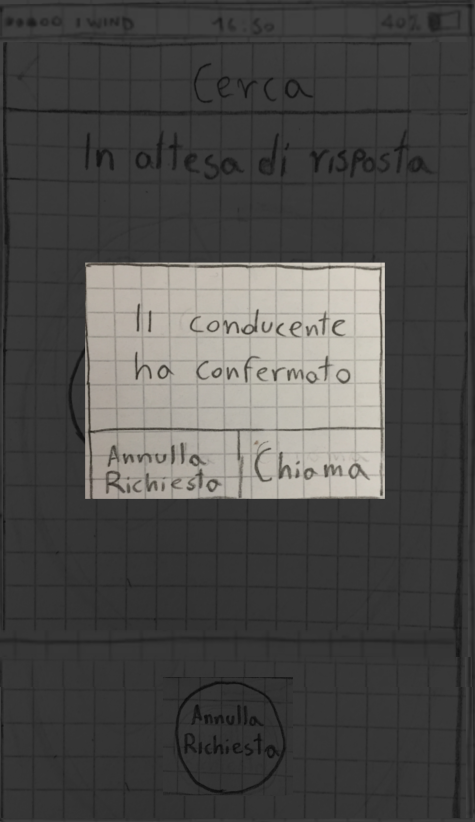 I WIND 16:50 40%
Cerca
In attesa di risposta
Il conducente
ha confermato
Annulla
Richiesta
Chiama
Annulla
Richiesta